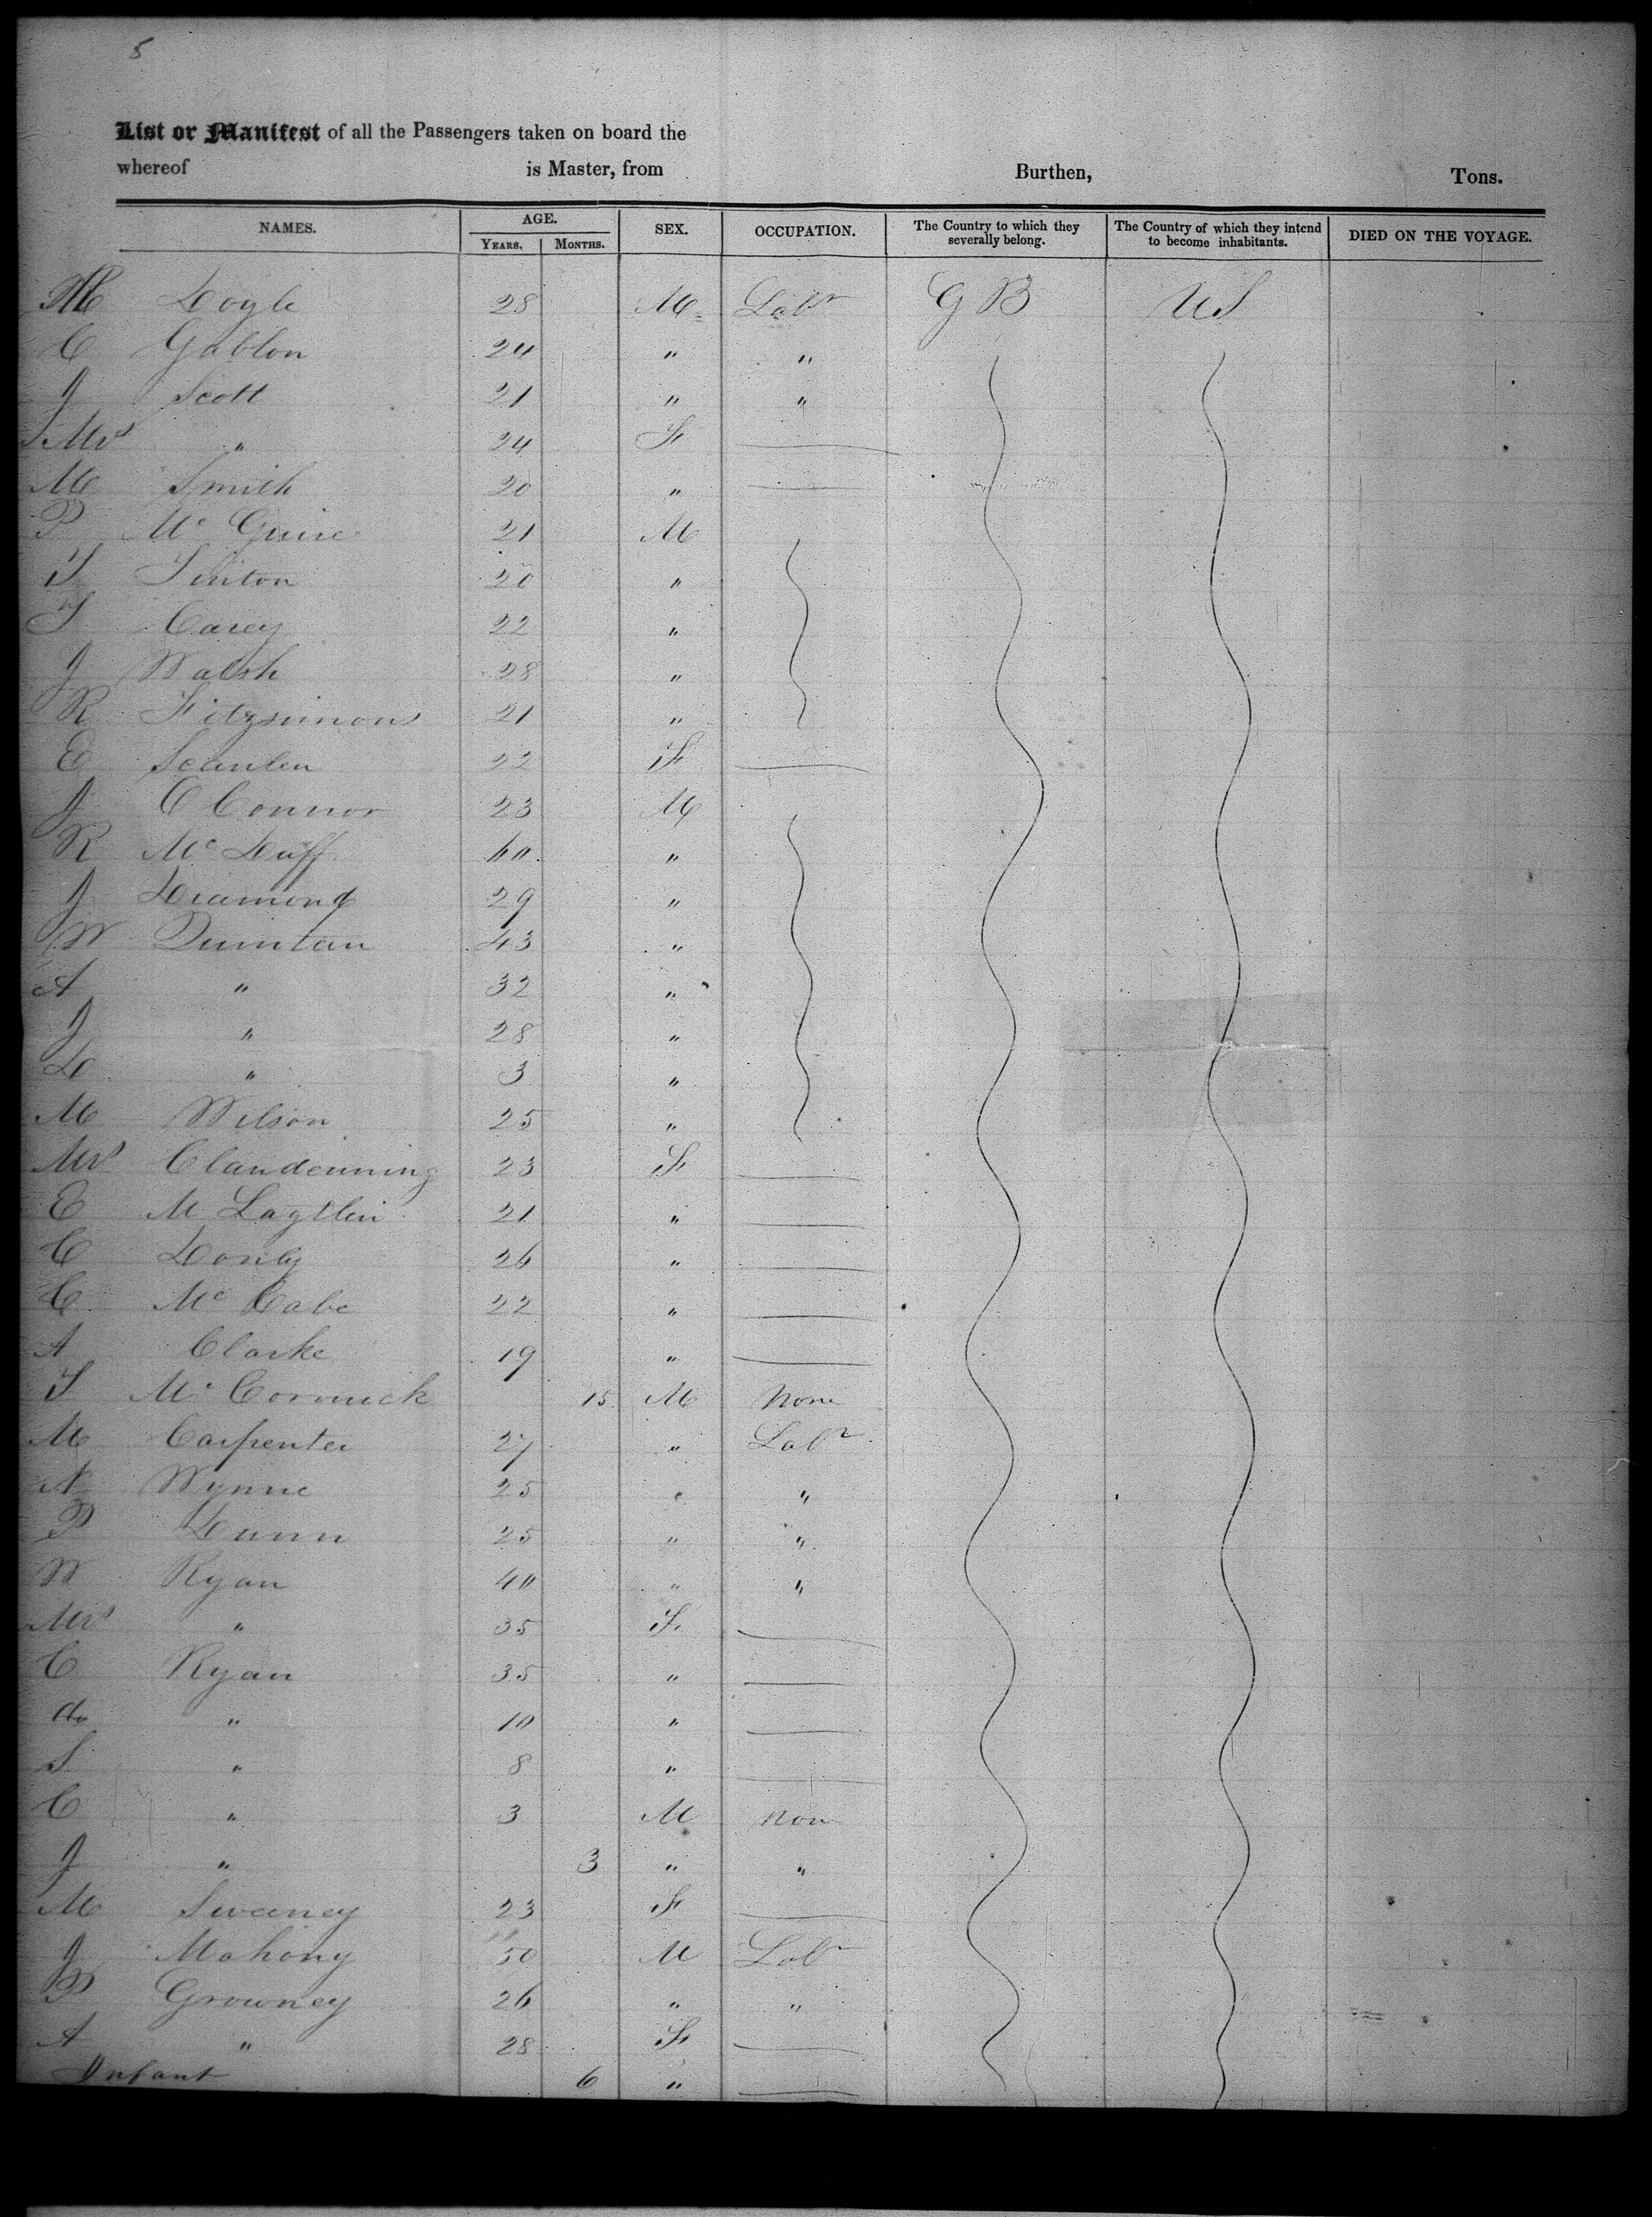 5
List or Manifest of all the Passengers taken on board the
whereof is Master, from Burthen, Tons.
NAMES. AGE. YEARS. MONTHS. SEX. OCCUPATION. The Country to which they severally belong. The Country of which they intend to become inhabitants. DIED ON THE VOYAGE.
M Doyle 28 M Labr G B U S
C Gablon 24 " "
J Scott 21 " "
Mrs " 24 F
M Smith 20 "
P Mc Guire 21 M
T Linton 20 "
T Carey 22 "
J Walsh 28 "
R Fitzsimons 21 "
E Scanlen 22 F
J O Connor 23 M
R Mc Duff 40 "
J Diamond 29 "
W Quinlan 43 "
A " 32 "
J " 28 "
D " 3 "
M Wilson 25 "
Mrs Clandenning 23 F
E M Lagtlin 21 "
C Donly 26 "
C Mc Cabe 22 "
A Clarke 19 "
T Mc Cormick 15 M None
M Carpenter 27 " Labr
N Wynne 25 " "
P Dunn 25 " "
W Ryan 40 " "
Mrs " 35 F
C Ryan 35 "
do " 10 "
S " 8 "
C " 3 M Non
J " 3 " "
M Sweeney 23 F
J Mahony 50 M Labr
P Growney 26 " "
A " 28 F
Infant 6 "